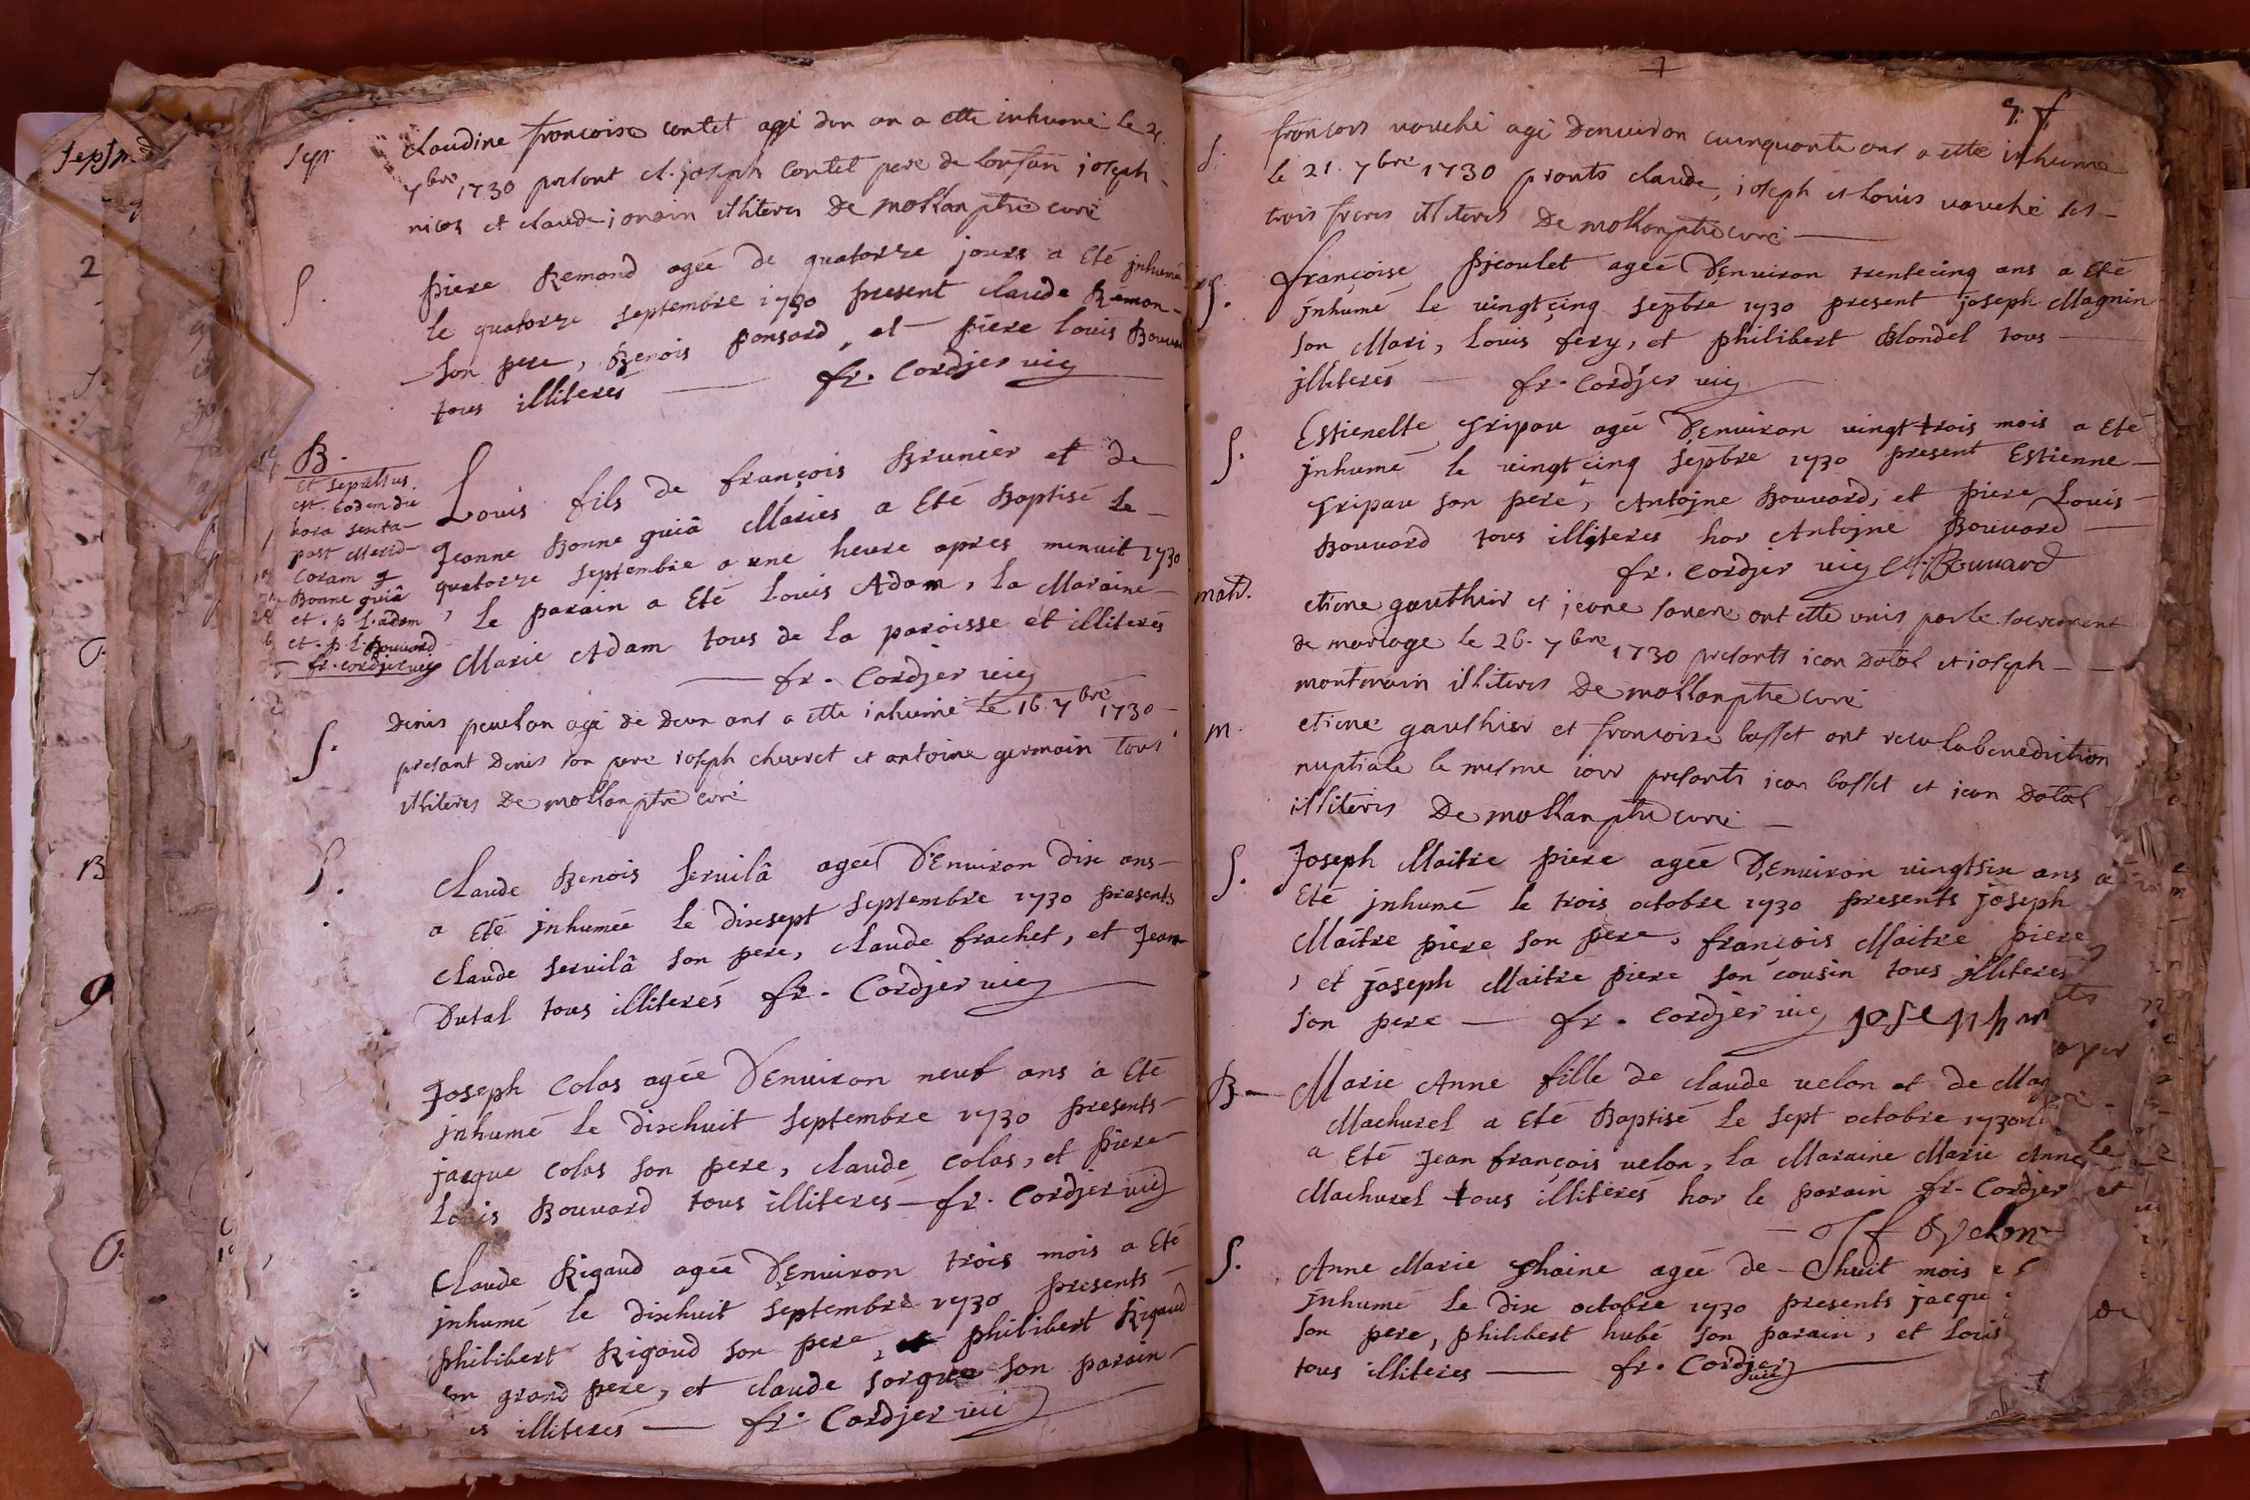 sept.
claudine francoise contet agé dun an a etté inhumé le 2.
7bre 1730 presant cl. joseph contet pere de lonfan joseph
et claude jonain illiteres De mollan ptre curé
S.
piere Remond agée de quatorze jours a Eté jnhumé
le quatorze septembre 1730 present claude Remon-
son pere, Benois ponsard, et piere louis Bouva
tous illiterés fr. Cordjer vic
B.
et sepultus
est Eodem die
hora sexta
post merid-
Coram J
Bonne guiâ
et p l. adam
et p. l. Bouvard
fr. cordjer vic
Louis fils de françois Brunier et de
Jeanne Bonne guiâ Mariés a Eté Baptisé Le
quatorze septembre a une heure apres menuit 1730
, le parain a Eté Louis Adam, la Maraine
Marie Adam tous de la paroisse et illiterés
fr. Cordjer vic
S.
Denis peuelon agé de deux ans a etté inhumé le 16. 7bre 1730
presant Denis son pere ioseph chevret et antoine germain tous
illiteres De mollan ptre curé
S.
Claude Benois servilâ agéé d'Environ dix ans
a Eté jnhumée le dixsept septembre 1730 presents
claude servilâ son pere, claude frachet, et Jean
Dutal tous illiterés fr. Cordjer vic
Joseph colas agée d'Environ neuf ans à Eté
jnhumé le dixhuit septembre 1730 presents
jacque colas son pere, claude colas, et piere
Louis Bouvard tous illiteres fr. Cordjer vic
Claude Rigaud agée d'Environ trois mois a Eté
jnhumé le dixhuit septembre 1730 presents
philibert Rigaud son pere, philibert Rigaud
grand pere, et claude sorgue son parain
es illiterés fr. Cordjer vic
S.
francois vouché agé Denviron cuinquante ans a etté inhumé
le 21. 7bre 1730 pronts claude, ioseph et louis vouché ses
trois freres illiteres De mollan ptre curé
S.
françoise pjcoulet ageé d'Environ trentecinq ans a Eté
jnhumé le vingtcinq sepbre 1730 present joseph Magnin
son Mari, Louis fery, et philibert Blondel tous
jlliterés fr. Cordjer vic
S.
Estienette Gripau agée d'Environ vingt trois mois a Eté
jnhumé le vingtcinq sepbre 1730 present Estienne
Gripau son pere, Antojne Bouvard, et piere Louis
Bouvard tous illiterés hor Antojne Bouvard
fr. cordjer vic A. Bouvard
matr.
etiene gauthier et jeane ont etté unis par le sacrement
de mariage le 26. 7bre 1730 presants iean Datal et ioseph
montmain illiteres De mollan ptre curé
m.
etiene gauthier et francoise basset ont receu la benediction
nuptiale le mesme iour presants iean basset et iean Datal
illiteres De mollan ptre curé
S.
Joseph Maitre piere agée d'Environ vingtsix ans a
Eté jnhumé le trois octobre 1730 presents joseph
Maitre piere son pere, françois Maitre piere
, et joseph Maitre piere son cousin tous jlliterés
son pere fr. Cordjer vic joseph m
B
Marie Anne fille de claude velon et de Mag
Machurel a Eté Baptisé Le sept octobre 1730
a Eté Jean françois velon, la Maraine Marie Anne
Machurel tous illiterés hor le parain fr. Cordjer
Jf Velon
S.
Anne Marie ghaine agée de huit mois a
jnhumé le dix octobre 1730 presents jacque
son pere, philibert hubé son parain, et Louis
tous illiteres fr. Cordjer vic